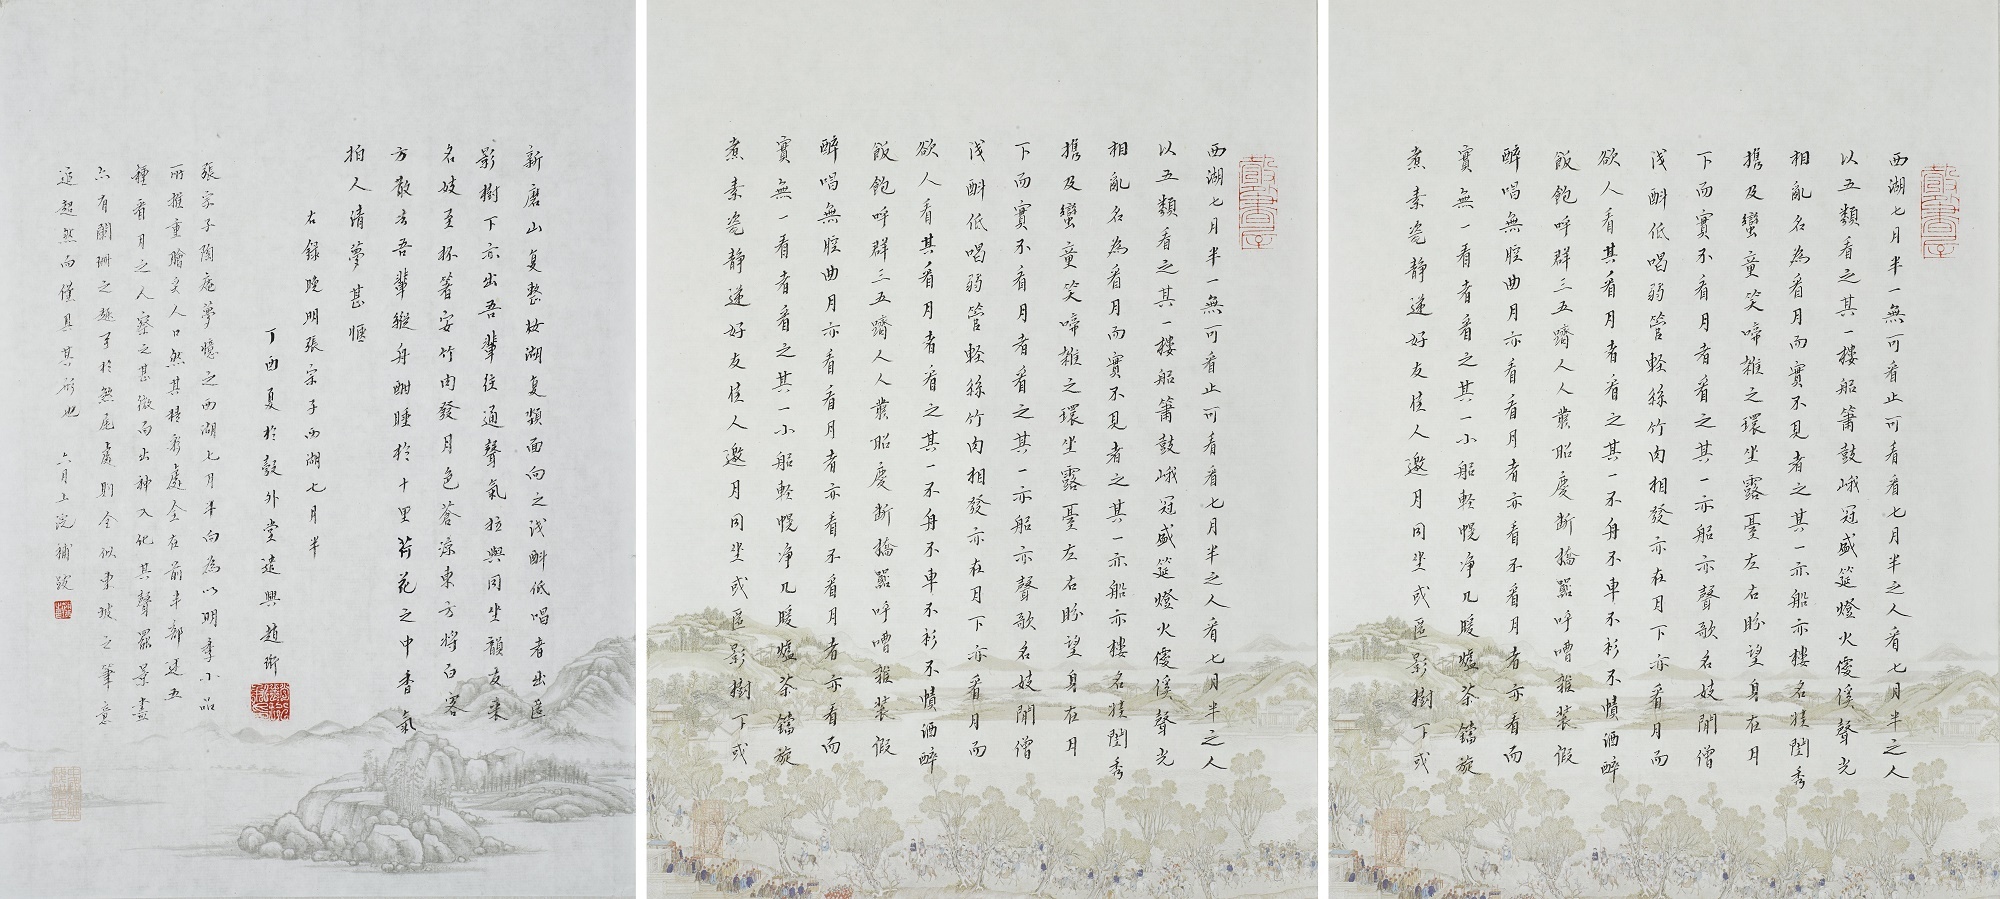 西湖七月半一無可看止可看看七月半之人看七月半之人
以五類看之其一樓船簫鼓峨冠盛筵燈火優傒聲光
相亂名為看月而實不見者之其一亦船亦樓名娃閨秀
攜及孌童笑啼雜之環坐露臺左右盼望身在月
下而實不看月者看之其一亦船亦聲歌名妓閒僧
淺斟低唱弱管輕絲竹肉相發亦在月下亦看月而
欲人看其看月者看之其一不舟不車不衫不幘酒醉
飯飽呼群三五躋人人叢昭慶斷橋嚣呼嘈雜裝假
醉唱無腔曲月亦看看月者亦看不看月者亦看而
實無一看者看之其一小船輕幌净几暖爐茶鐺旋
煮素瓷靜遞好友佳人邀月同坐或匿影樹下或
西湖七月半一無可看止可看看七月半之人看七月半之人
以五類看之其一樓船簫鼓峨冠盛筵燈火優傒聲光
相亂名為看月而實不見者之其一亦船亦樓名娃閨秀
攜及孌童笑啼雜之環坐露臺左右盼望身在月
下而實不看月者看之其一亦船亦聲歌名妓閒僧
淺斟低唱弱管輕絲竹肉相發亦在月下亦看月而
欲人看其看月者看之其一不舟不車不衫不幘酒醉
飯飽呼群三五躋人人叢昭慶斷橋嚣呼嘈雜裝假
醉唱無腔曲月亦看看月者亦看不看月者亦看而
實無一看者看之其一小船輕幌净几暖爐茶鐺旋
煮素瓷靜遞好友佳人邀月同坐或匿影樹下或
新磨山复整妝湖复頮面向之淺斟低唱者出匿
影樹下亦出吾輩往通聲氣拉與同坐韻友來
名妓至杯箸安竹肉發月色蒼涼東方將白客
方散去吾輩縱舟酣睡於十里荷花之中香氣
拍人清夢甚愜
右錄晚明張宗子西湖七月半
丁酉夏於彀外堂遣興趙衎
張宗子陶庵夢憶之西湖七月半向為以明季小品
所推重膾炙人口然其精彩處全在前半部述五
種看月之人察之甚微而出神入化其聲罷景盡
亦有闌珊之趣至於煞尾處則全似東坡之筆意
超然而僅具其形也 六月上浣補跋